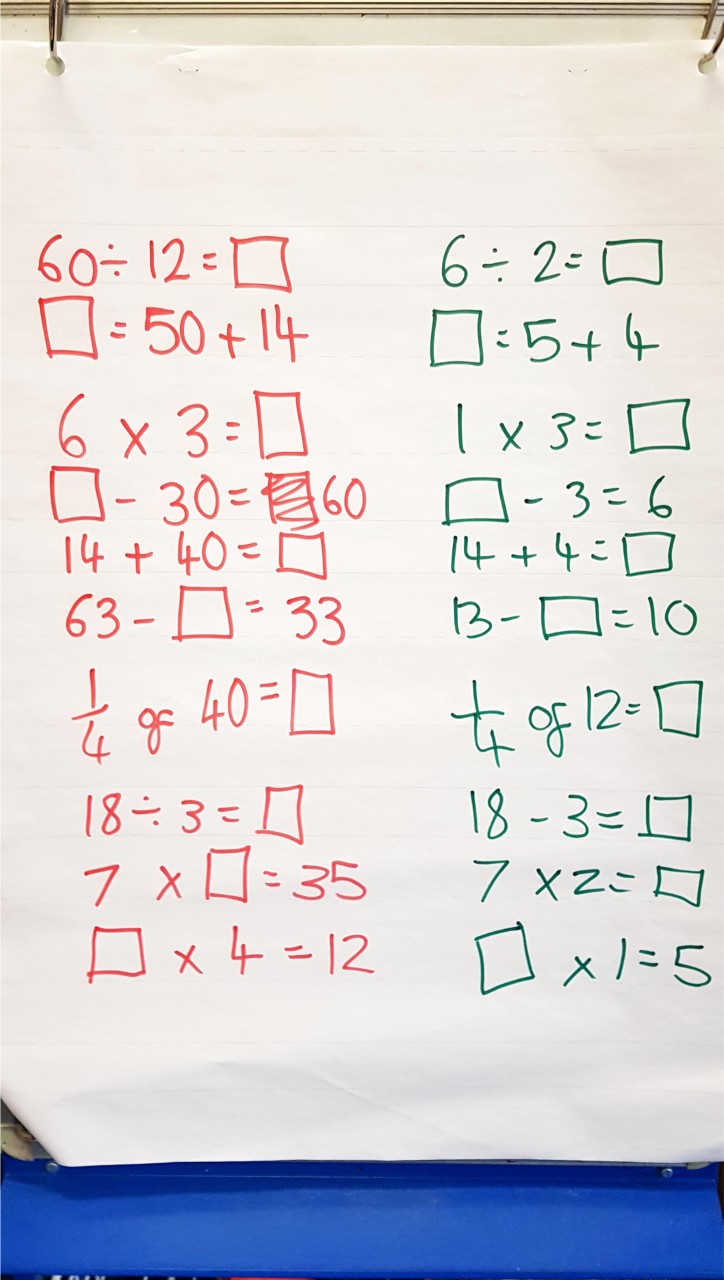 60 ÷ 12 = □
□ = 50 + 14
6 x 3 = □
□ - 30 = 60
14 + 40 = □
63 - □ = 33
1/4 of 40 = □
18 ÷ 3 = □
7 x □ = 35
□ x 4 = 12
6 ÷ 2 = □
□ = 5 + 4
1 x 3 = □
□ - 3 = 6
14 + 4 = □
13 - □ = 10
1/4 of 12 = □
18 - 3 = □
7 x 2 = □
□ x 1 = 5